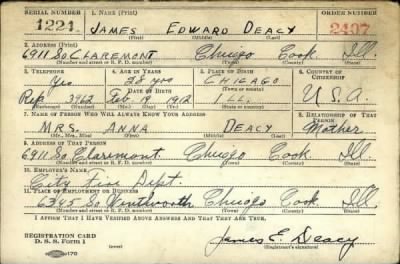 SERIAL NUMBER 1. NAME (Print) ORDER NUMBER
1221 JAMES EDWARD DEACY 2407
(First) (Middle) (Last)
2. ADDRESS (Print)
6911 So CLAREMONT Chicago Cook Ill.
(Number and street or R. F. D. number) (Town) (County) (State)
3. TELEPHONE 4. AGE IN YEARS 5. PLACE OF BIRTH 6. COUNTRY OF CITIZENSHIP
28 yrs CHICAGO
DATE OF BIRTH
Rep 3962 Feb 19 1912 ILL. U.S.A.
(Exchange) (Number) (Mo.) (Day) (Yr.) (State or country)
7. NAME OF PERSON WHO WILL ALWAYS KNOW YOUR ADDRESS 8. RELATIONSHIP OF THAT PERSON
MRS. ANNA DEACY Mother
(Mr., Mrs., Miss) (First) (Middle) (Last)
9. ADDRESS OF THAT PERSON
6911 So. Claremont. Chicago Cook Ill.
(Number and street or R. F. D. number) (Town) (County) (State)
10. EMPLOYER'S NAME
City Fire Dept.
11. PLACE OF EMPLOYMENT OR BUSINESS
6345 So Wentworth Chicago Cook Ill.
(Number and street or R. F. D. number) (Town) (County) (State)
I AFFIRM THAT I HAVE VERIFIED ABOVE ANSWERS AND THAT THEY ARE TRUE.
REGISTRATION CARD
D. S. S. Form 1
James E. Deacy
(Registrant's signature)